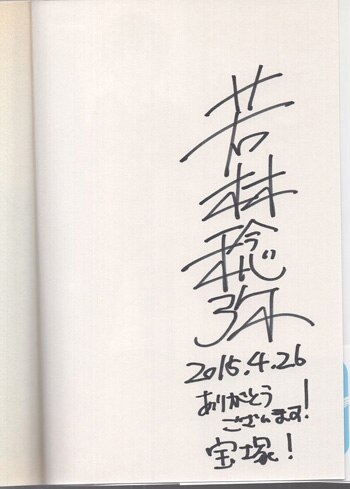 若林稔弥
2015.4.26
ありがとう
ございます!
宝塚!